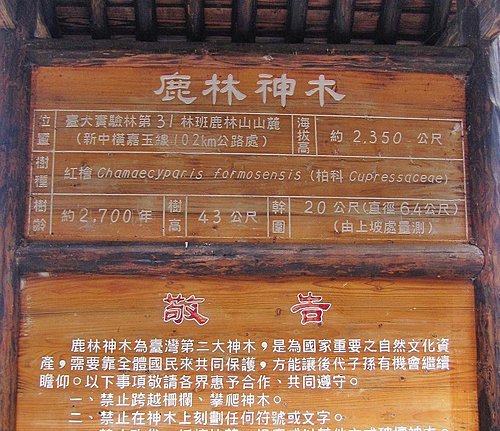 鹿林神木
位置 臺大實驗林第31林班鹿林山山麓
(新中橫嘉玉線102km公路處)
海拔高 約 2,350 公尺
樹種 紅檜 Chamaecyparis formosensis (柏科 Cupressaceae)
樹齡 約2,700年 樹高 43 公尺 幹圍 20 公尺(直徑6.4公尺)
(由上坡處量測)
敬告
鹿林神木為臺灣第二大神木，是為國家重要之自然文化資
產，需要靠全體國民來共同保護，方能讓後代子孫有機會繼續
瞻仰。以下事項敬請各界惠予合作、共同遵守。
一、禁止跨越柵欄、攀爬神木。
二、禁止在神木上刻劃任何符號或文字。